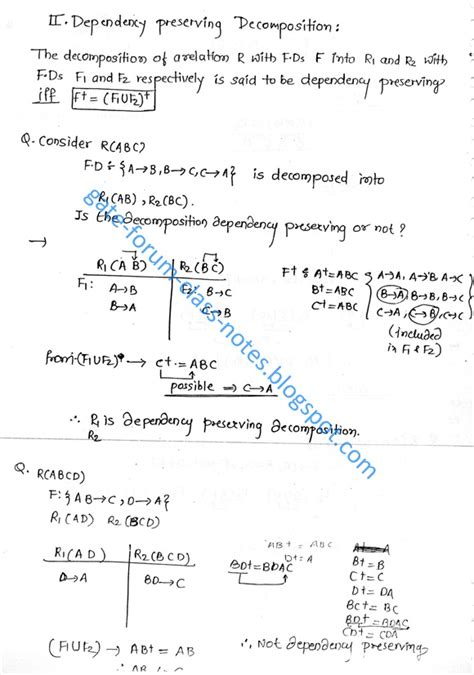 II. Dependency preserving Decomposition:
The decomposition of a relation R with F.Ds F into R1 and R2 with
F.Ds F1 and F2 respectively is said to be dependency preserving
iff F+ = (F1UF2)+
Q. Consider R(ABC)
F.D : {A→B, B→C, C→A} is decomposed into
R1(AB), R2(BC).
Is the decomposition dependency preserving or not?
→
R1(A B) R2(B C)
F1: A→B F2: B→C
B→A C→B
F+ { A+=ABC { A→A, A→B A→C
B+=ABC B→A, B→B, B→C
C+=ABC C→A, C→B, C→C
(included
in F1 & F2)
From (F1UF2) → C+ = ABC
possible ⇒ C→A
∴ R1 is dependency preserving decomposition.
R2
Q. R(ABCD)
F: { AB→C, D→A}
R1(AD) R2(BCD)
R1(AD) R2(BCD)
D→A BD→C
AB+ = ABC
D+=A
BD+=BDAC
A+=A
B+=B
C+=C
D+=DA
BC+=BC
BD+=BDAC
CD+=CDA
(F1UF2) → AB+=AB
∴ Not dependency preserving
gate-forum-class-notes.blogspot.com